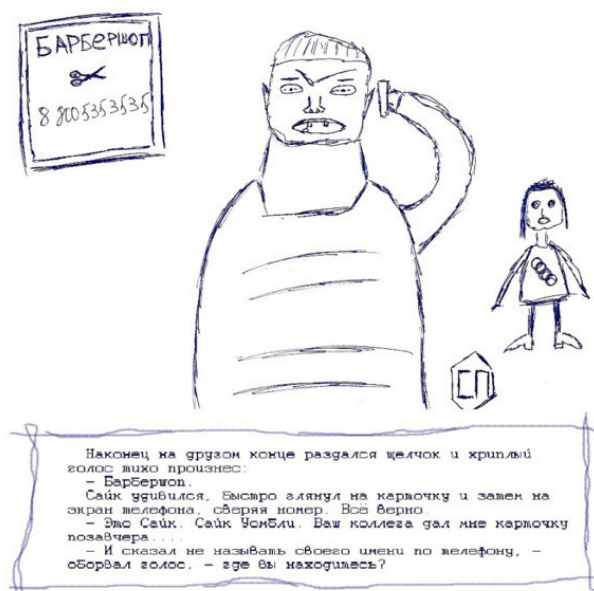 БАРБЕРШОП
8 8005353535
СП
Наконец на другом конце раздался щелчок и хриплый
голос тихо произнес:
– Барбершоп.
Сайк удивился, быстро глянул на карточку и затем на
экран телефона, сверяя номер. Всё верно.
– Это Сайк. Сайк Уомбли. Ваш коллега дал мне карточку
позавчера....
– И сказал не называть своего имени по телефону, –
оборвал голос, – где вы находитесь?